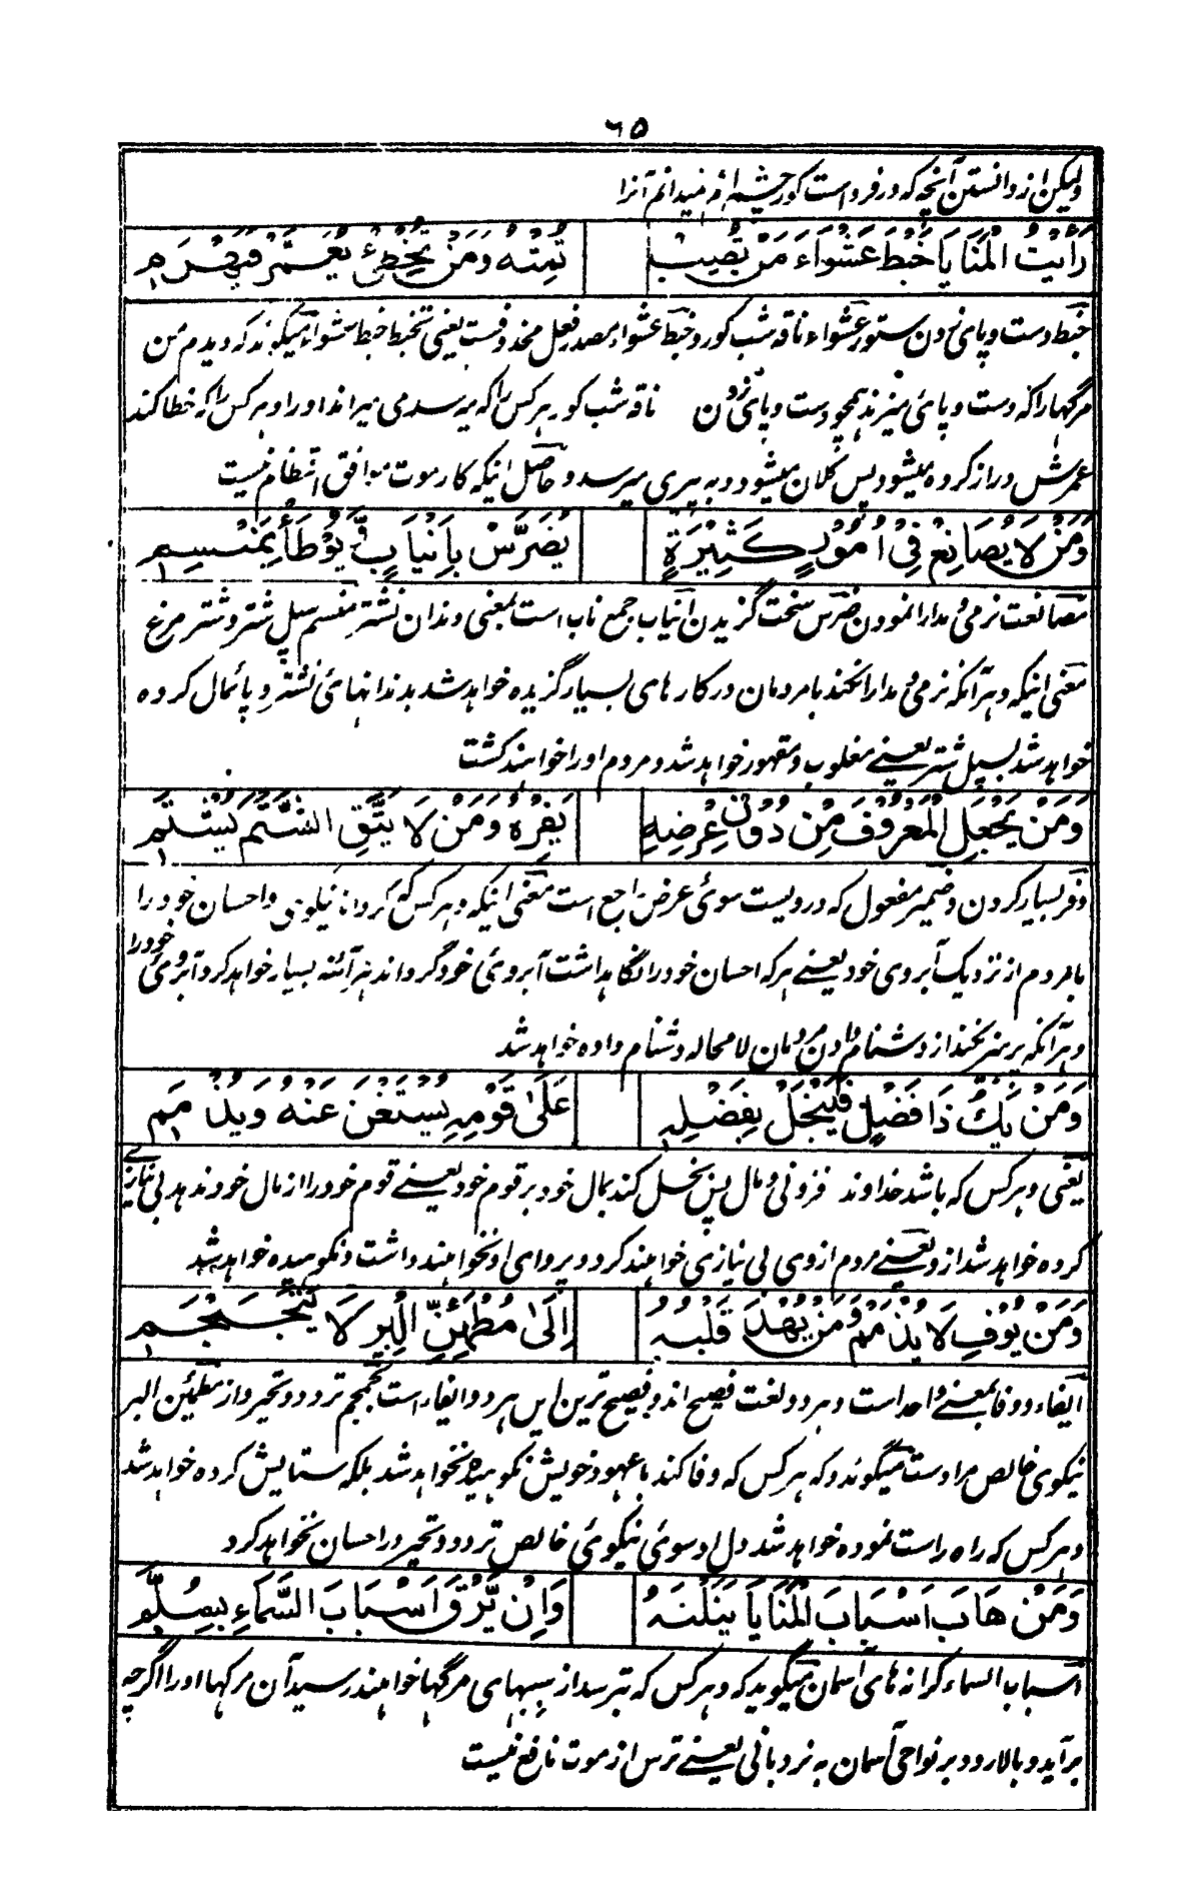 ٦٥
ولیکن از دانستن آنچه که در فردا است کور چشم ام نمیدانم آنرا
رَأَيْتُ الْمَنَايَا خَبْطَ عَشْوَاءَ مَنْ تُصِيبْ تُمِتْهُ وَمَنْ تُخْطِئْ يُعَمَّرْ فَيَهْرَمِ
خبط دست و پای زدن ستور عشواء ناقه شب کور و خبط عشواء مصدر فعل محذوفست یعنی تخبط خبط عشواء میگوید که دیدم من
مرگها را که دست و پائی میزنند همچو دست و پای زدن ناقه شب کور هر کس را که میرسد می میراند او را و هر کس را که خطا کند
عمرش دراز کرده میشود پس کلان میشود و به پیری میرسد و حاصل اینکه کار موت موافق انتظام نیست
وَمَنْ لَا يُصَانِعْ فِي أُمُورٍ كَثِيرَةٍ يُضَرَّسْ بِأَنْيَابٍ وَّيُوْطَأْ بِمَنْسِمِ
مصانعت نرمی و مدارا نمودن ضرس سخت گزیدن انیاب جمع ناب است بمعنی دندان نشتر منسم سپل شتر و شتر مرغ
معنی اینکه و هر آنکه نرمی و مدارا نکند با مردمان در کار های بسیار گزیده خواهد شد بدندانهائی نشتر و پائمال کرده
خواهد شد بسپل شتر یعنے مغلوب و مقهور خواهد شد و مردم او را خواهند کشت
وَمَنْ يَّجْعَلِ الْمَعْرُوْفَ مِنْ دُوْنِ عِرْضِهِ يَفِرْهُ وَمَنْ لَا يَتَّقِ الشَّتْمَ يُشْتَمِ
وفر بسیار کردن و ضمیر مفعول که درویست سوئی عرض راجع است معنی اینکه و هر کس که گرداند نیکوئی و احسان خود را
با مردم از نزدیک آبروی خود یعنے هر که احسان خود را نگاهداشت آبروئی خود گرداند هر آئنه بسیار خواهد کرد آبروئی خود را
و هر آنکه پرهیز نکند از دشنام دادن مردمان لا محاله دشنام داده خواهد شد
وَمَنْ يَّكُ ذَا فَضْلٍ فَيَبْخَلْ بِفَضْلِهِ عَلَىٰ قَوْمِهِ يُسْتَغْنَ عَنْهُ وَيُذْمَمِ
یعنی و هر کس که باشد خداوند فزونی و مال پس بخل کند بمال خود بر قوم خود یعنے قوم خود را از مال خود ندهد بی نیازی
کرده خواهد شد از و یعنے مردم از وی بی نیازی خواهند کرد و پروای او نخواهند داشت و نکوهیده خواهد شد
وَمَنْ يُّوْفِ لَا يُذْمَمْ وَمَنْ يُّهْدَ قَلْبُهُ إِلَىٰ مُطْمَئِنِّ الْبِرِّ لَا يَتَجَمْجَمِ
ایفاء و وفا بمعنے واحد است و هر دو لغت فصیح اند و فصیح ترین این هر دو ایفاء است تجمجم تردد و تحیر و از مطمئین البر
نیکوی خالص مراد ست میگوید و که هر کس که وفا کند با عهود خویش نکوهیده نخواهد شد بلکه ستایش کرده خواهد شد
و هر کس که راه راست نموده خواهد شد دل او سوئی نیکوئی خالص تردد و تحیر در احسان نخواهد کرد
وَمَنْ هَابَ أَسْبَابَ الْمَنَايَا يَنَلْنَهُ وَإِنْ يَّرْقَ أَسْبَابَ السَّمَاءِ بِسُلَّمِ
اسباب السماء کرانه های آسمان میگوید که و هر کس که بترسد از سببهای مرگها خواهند رسید آن مرگها او را اگرچه
برآید و بالا رود بر نواحی آسمان به نردبانی یعنے ترس از موت نافع نیست